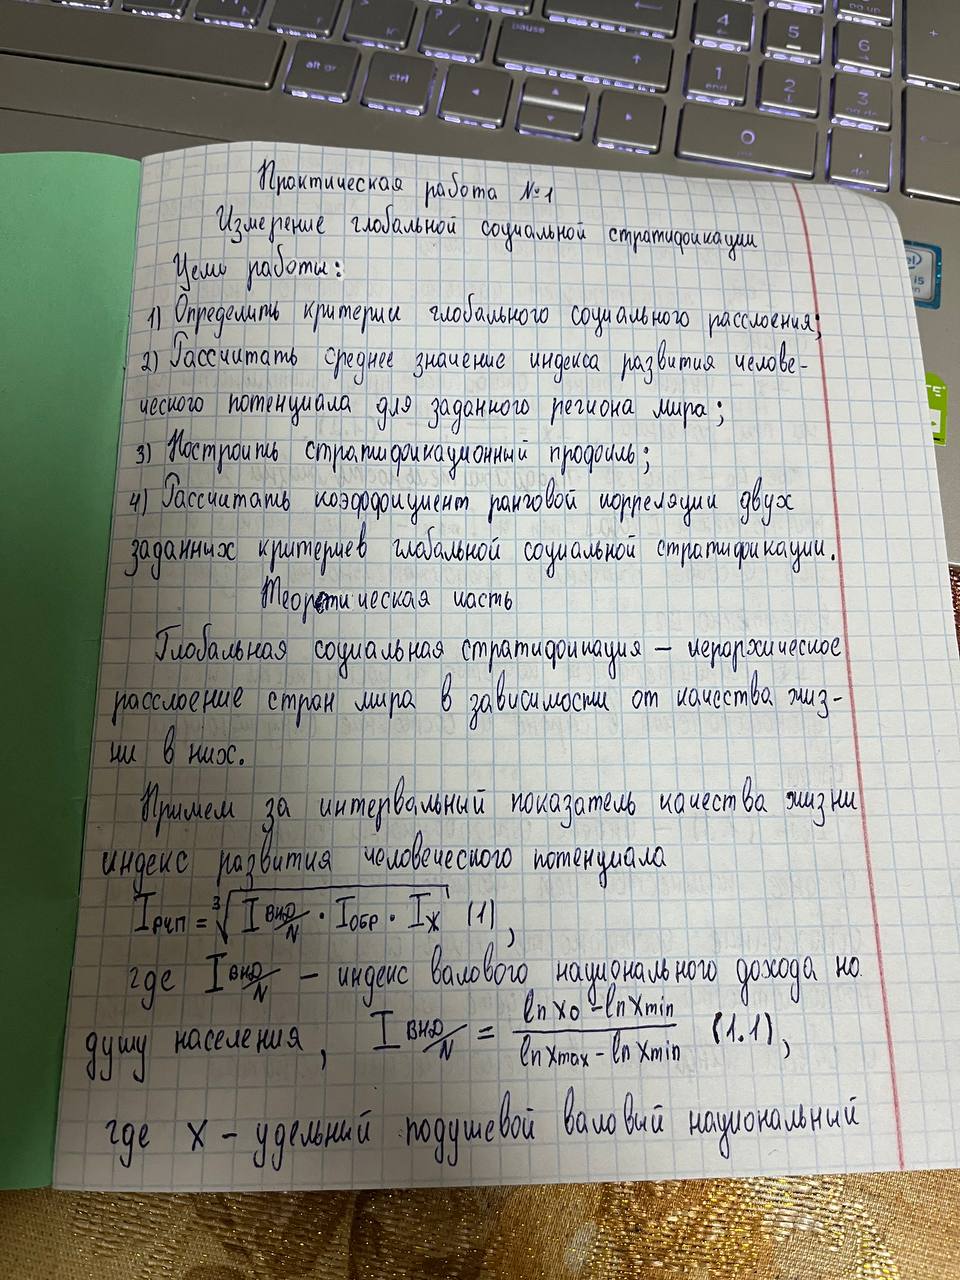 pause
alt gr
ctrl
4
5
6
1
end
2
3
0
Практическая работа №1
Измерение глобальной социальной стратификации
Цели работы:
1) Определить критерии глобального социального расслоения;
2) Рассчитать среднее значение индекса развития челове-
ческого потенциала для заданного региона мира;
3) Построить стратификационный профиль;
4) Рассчитать коэффициент ранговой корреляции двух
заданных критериев глобальной социальной стратификации.
Теоретическая часть
Глобальная социальная стратификация – иерархическое
расслоение стран мира в зависимости от качества жиз-
ни в них.
Примем за интервальный показатель качества жизни
индекс развития человеческого потенциала
I РЧП = ³√(I ВНД/N · I ОБР · I Ж) (1),
где I ВНД/N – индекс валового национального дохода на
душу населения, I ВНД/N = (ln x0 – ln xmin)/(ln xmax – ln xmin) (1.1),
где x – удельный подушевой валовый национальный